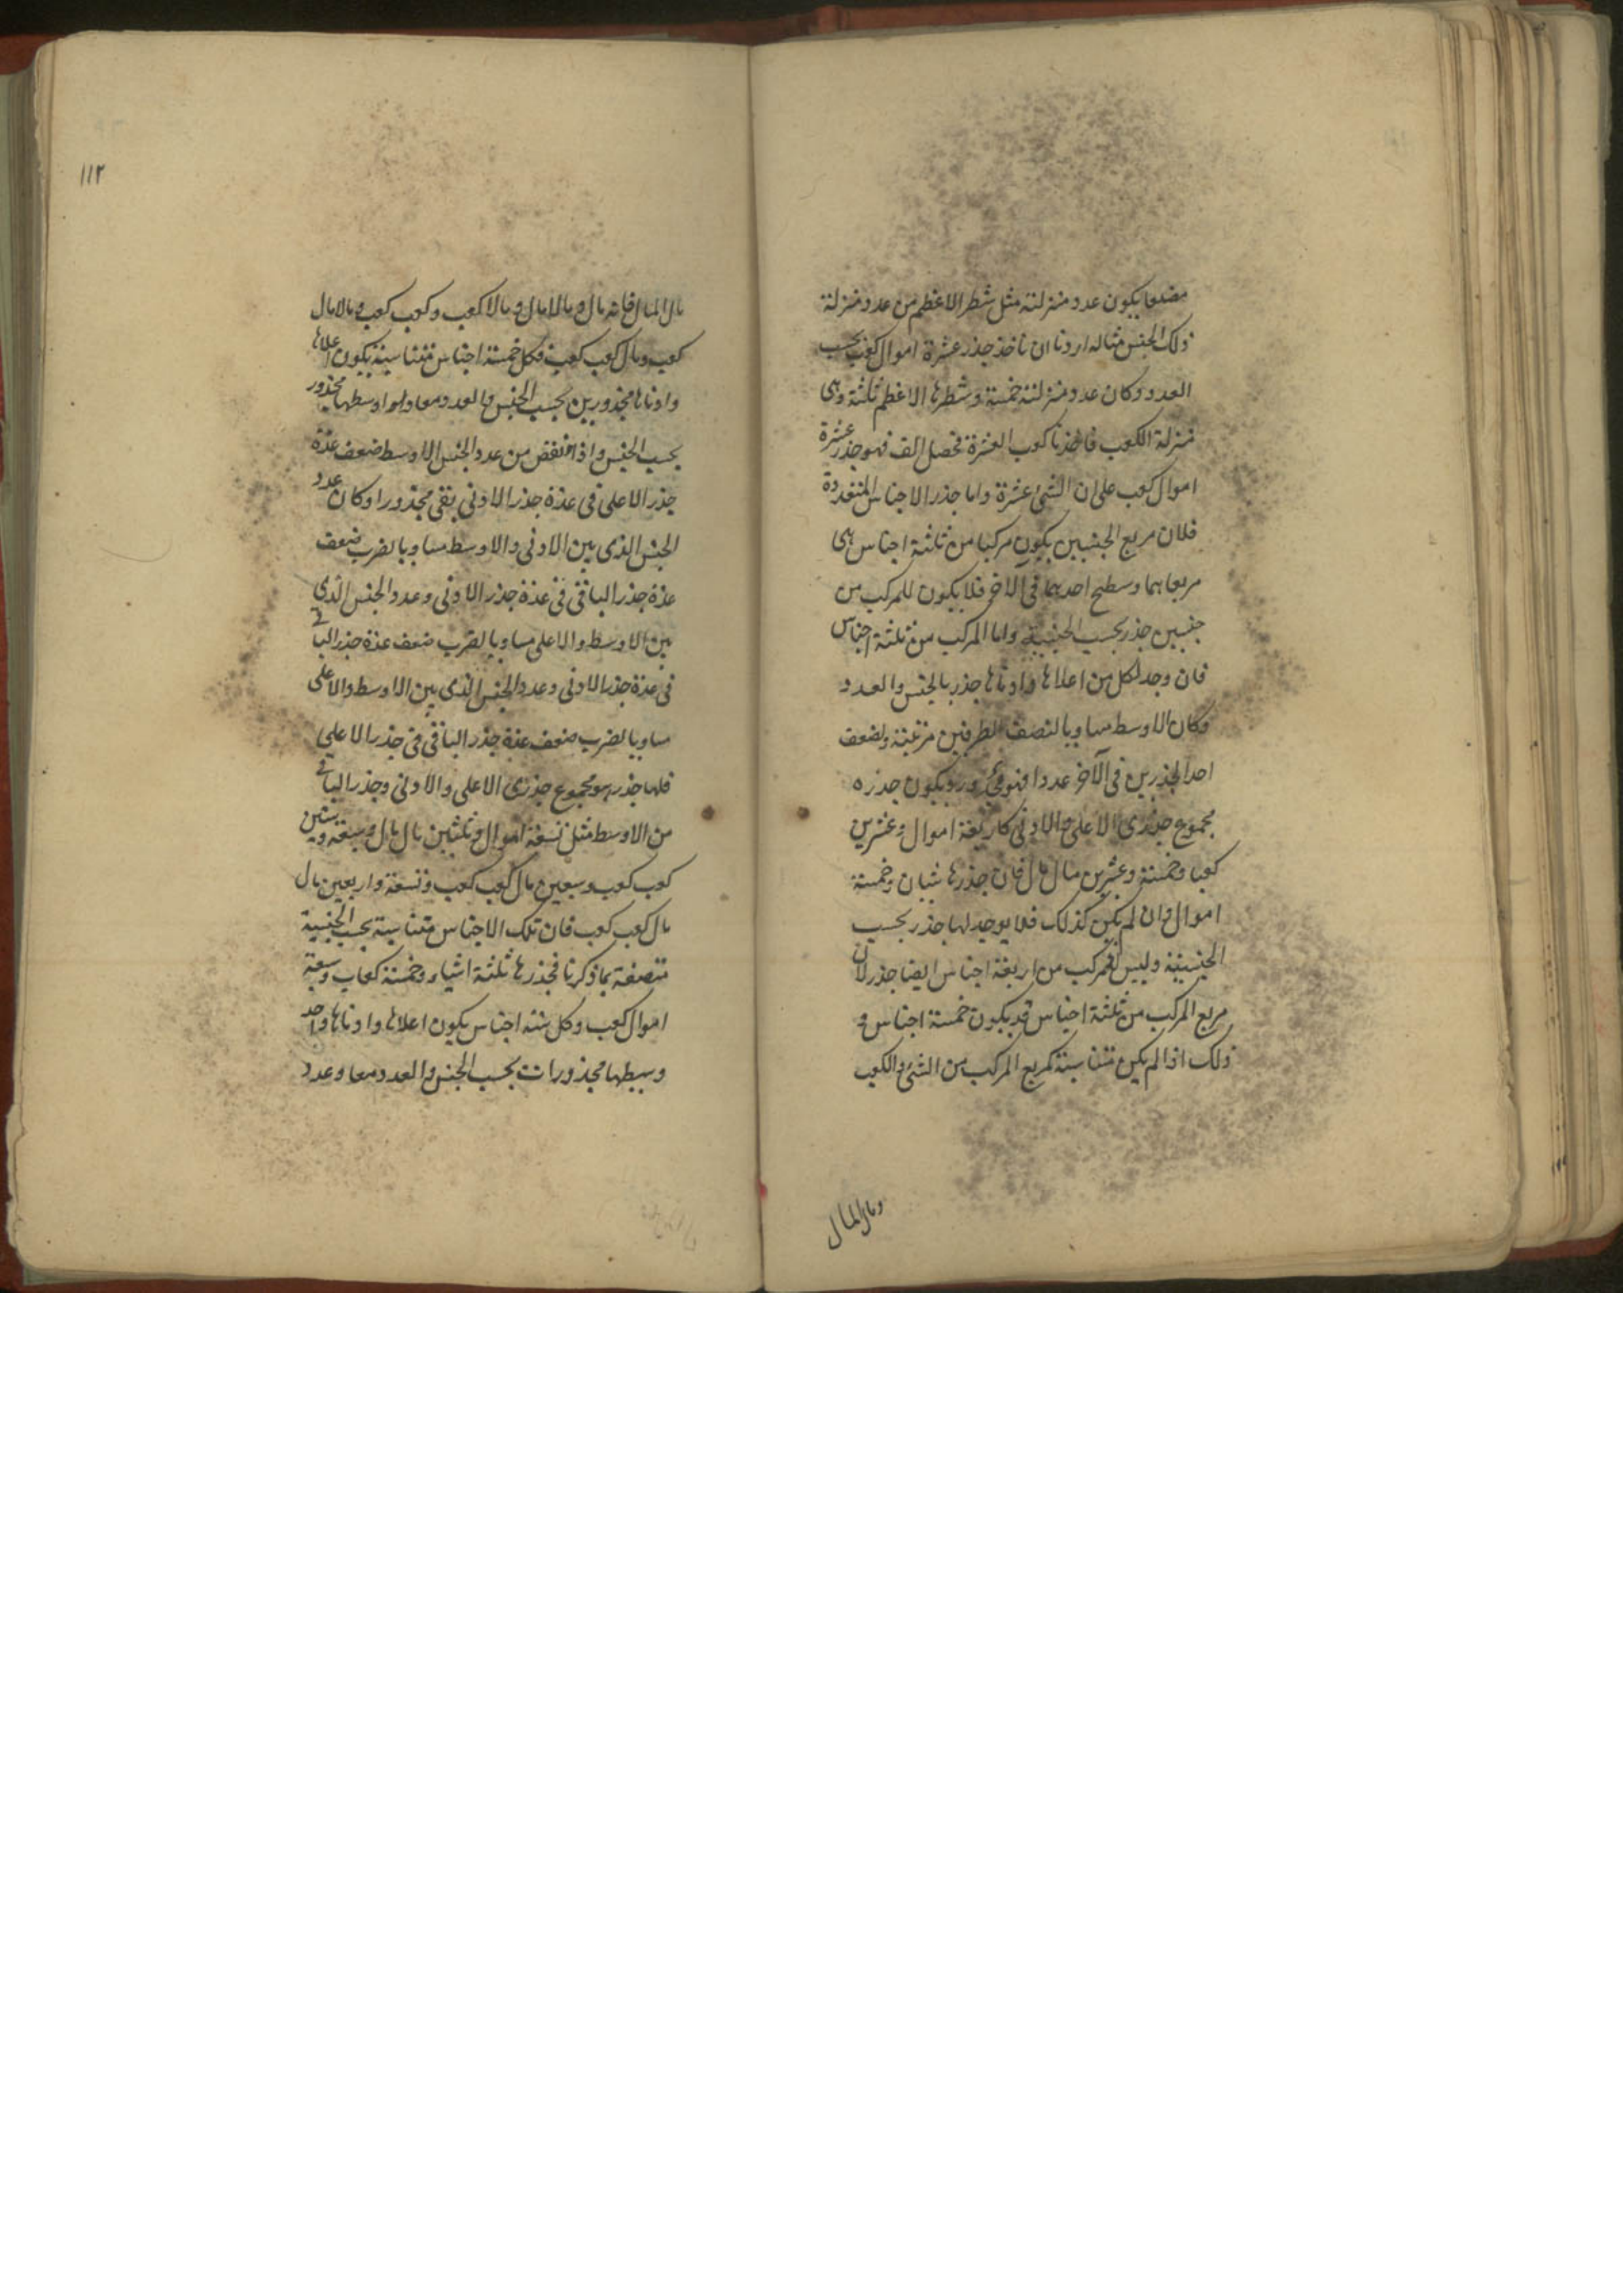 مضلعا يكون عدد منزلته مثل شطر الاعظم من عدد منزلة
ذلك الجنس مثاله اردنا ان ناخذ جذر عشرة اموال كعب بحسب
العدد وكان عدد منزلته خمسة وشطرها الاعظم ثلثة وهى
منزلة الكعب فاخذنا كعب العشرة فحصل الف فهو جذر عشرة
اموال كعب على ان الشئ عشرة واما جذر الاجناس المتعددة
فلان مربع الجنسين يكون مركبا من ثلثة اجناس هى
مربعاهما وسطح احدهما فى الاخر فلا يكون للمركب من
جنسين جذر بحسب الجنسية واما المركب من ثلثة اجناس
فان وجد لكل من اعلاها وادناها جذر بالجنس والعدد
وكان الاوسط مساويا لنصف الطرفين مرتبة ولضعف
احد الجذرين فى الآخر عددا فهو مجذور ويكون جذره
مجموع جذرى الاعلى والادنى كاربعة اموال وعشرين
كعبا وخمسة وعشرين مال مال فان جذرها شيان وخمسة
اموال وان لم يكن كذلك فلا يوجد لها جذر بحسب
الجنسية وليس لمركب من اربعة اجناس ايضا جذر لان
مربع المركب من ثلثة اجناس قد يكون خمسة اجناس و
ذلك اذا لم يكن متناسبة كمربع المركب من الشئ والكعب
ومال المال
١١٢
مال المال فانه مال و مالامال و مالا كعب وكعب كعب و مالامال
كعب ومال كعب كعب فكل خمسة اجناس متناسبة يكون اعلاها
وادناها مجذورين بحسب الجنس والعدد معا واوسطها مجذور
بحسب الجنس واذا نقص من عدد الجنس الاوسط ضعف عدة
جذر الاعلى فى عدة جذر الادنى بقى مجذورا وكان عدد
الجنس الذى بين الادنى والاوسط مساويا لضرب ضعف
عدة جذر الباقى فى عدة جذر الادنى وعدد الجنس الذى
بين الاوسط والاعلى مساويا لضرب ضعف عدة جذر الباقى
فى عدة جذر الادنى وعدد الجنس الذى بين الاوسط والاعلى
مساويا لضرب ضعف عدة جذر الباقى فى جذر الاعلى
فلها جذر هو مجموع جذرى الاعلى والادنى وجذر الباقى
من الاوسط مثل تسعة اموال وثلثين مال مال وسبعة وستين
كعب كعب وسبعين مال كعب كعب وتسعة واربعين مال
مال كعب كعب فان تلك الاجناس متناسبة بحسب الجنسية
متصفة بما ذكرنا فجذرها ثلثة اشياء وخمسة كعاب وسبعة
اموال كعب وكل ستة اجناس يكون اعلاها وادناها واحد
وسيطها مجذورات بحسب الجنس والعدد معا وعدد